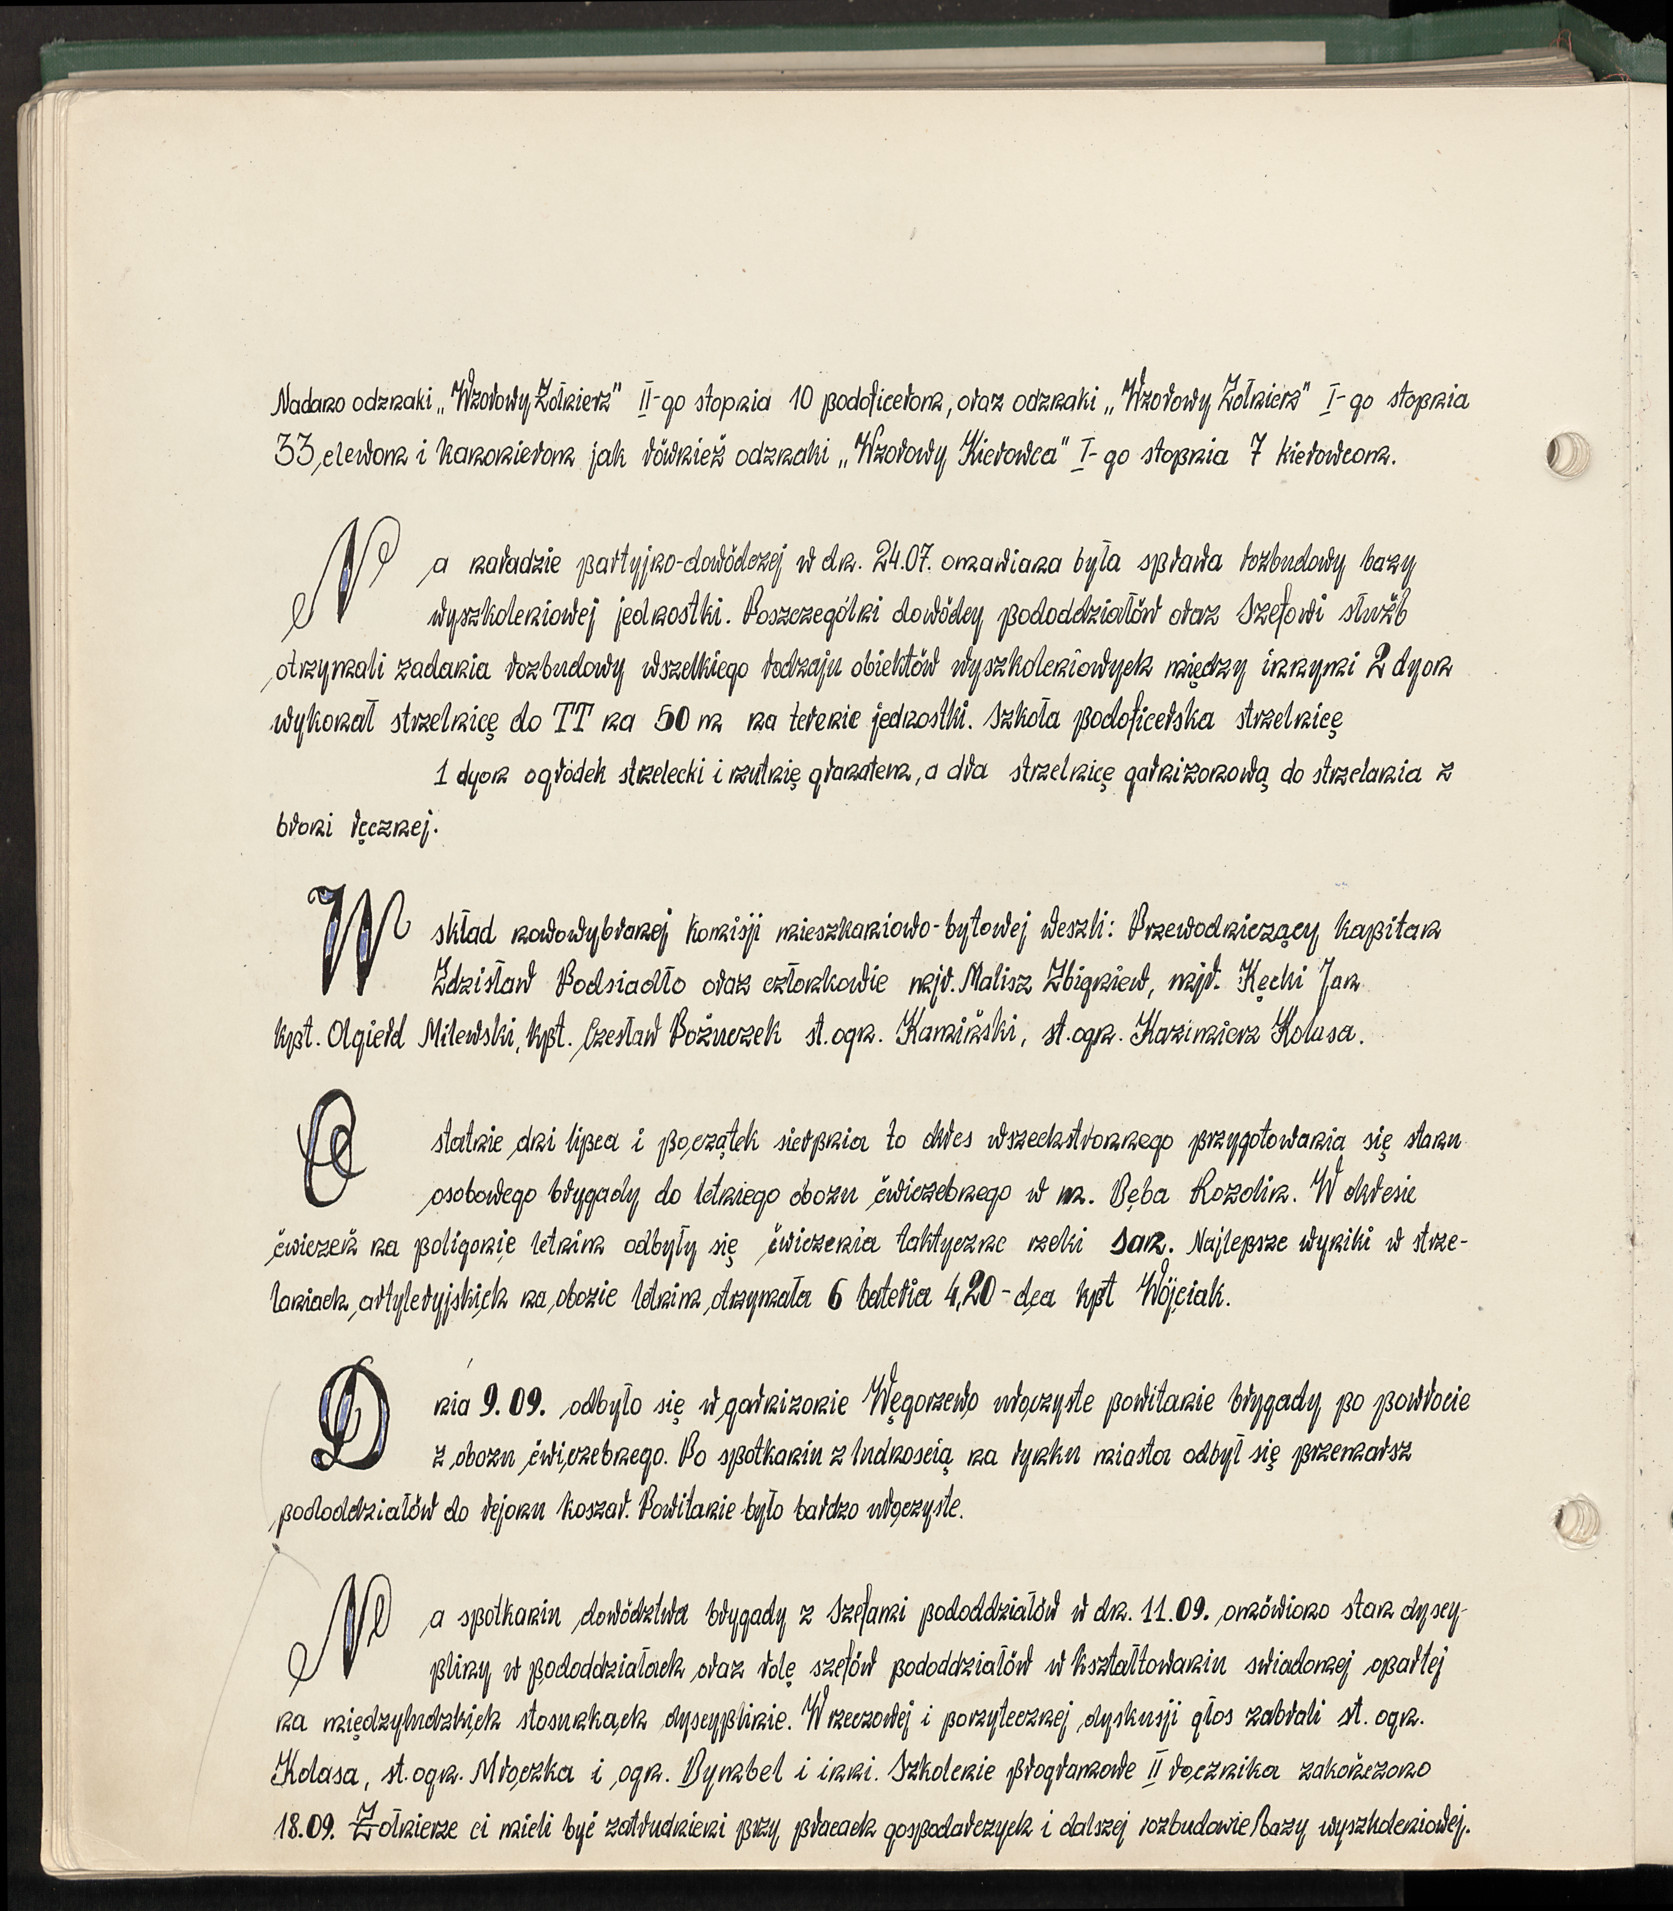 Nadano odznaki „Wzorowy Żołnierz" II-go stopnia 10 podoficerom, oraz odznaki „Wzorowy Żołnierz" I-go stopnia
33 elewom i kanonierom jak również odznaki „Wzorowy Kierowca" I-go stopnia 7 kierowcom.
Na naradzie partyjno-dowódczej w dn. 24.07. omawiana była sprawa rozbudowy bazy
wyszkoleniowej jednostki. Poszczególni dowódcy pododdziałów oraz Szefowi służb
otrzymali zadania rozbudowy wszelkiego rodzaju obiektów wyszkoleniowych między innymi 2 dyon
wykonał strzelnicę do TT na 50 m na terenie jednostki. Szkoła podoficerska strzelnicę
1 dyon ogródek strzelecki i rzutnię granatem, a dra strzelnicę garnizonową do strzelania z
broni ręcznej.
W skład nowowybranej komisji mieszkaniowo-bytowej weszli: Przewodniczący kapitan
Zdzisław Podsiadło oraz członkowie mjr. Malisz Zbigniew, mjr. Kęcki Jan
kpt. Olgierd Milewski, kpt. Czesław Bożuczek st. ogn. Kamiński, st. ogn. Kazimierz Kolasa.
Ostatnie dni lipca i początek sierpnia to okres wszechstronnego przygotowania się stanu
osobowego brygady do letniego obozu ćwiczebnego w m. Bęba Rozolin. W okresie
ćwiczeń na poligonie letnim odbyły się ćwiczenia taktyczne rzeki San. Najlepsze wyniki w strze-
laniach artyleryjskich na obozie letnim otrzymała 6 bateria 4,20-dca kpt Wójciak.
Dnia 9.09. odbyło się w garnizonie Węgorzewo uroczyste powitanie brygady po powrocie
z obozu ćwiczebnego. Po spotkaniu z ludnością na rynku miasta odbył się przemarsz
pododdziałów do rejonu koszar. Powitanie było bardzo uroczyste.
Na spotkaniu dowództwa brygady z Szefami pododdziałów w dn. 11.09. omówiono stan dyscy-
pliny w pododdziałach oraz rolę szefów pododdziałów w kształtowaniu swiadomej opartej
na międzyludzkich stosunkach dyscyplinie. W rzeczowej i pozytecznej dyskusji głos zabrali st. ogn.
Kolasa, st. ogn. Mroczka i ogn. Bymbel i inni. Szkolenie programowe II rocznika zakończono
18.09. Żołnierze ci mieli być zatrudnieni przy pracach gospodarczych i dalszej rozbudowie Bazy wyszkoleniowej.